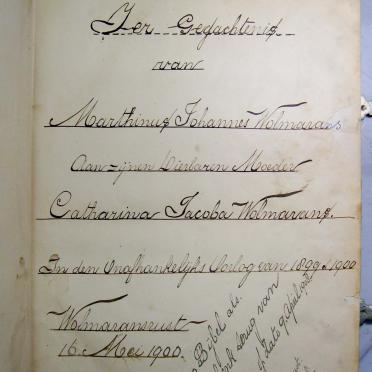 Ter Gedachtenis
van
Marthinus Johannes Wolmarans
Aan zijnen Dierbaren Moeder
Catharina Jacoba Wolmarans.
In den Onafhankelijks Oorlog van 1899 & 1900
Wolmaransrust
16 Mei 1900
Bijbel als
terug van